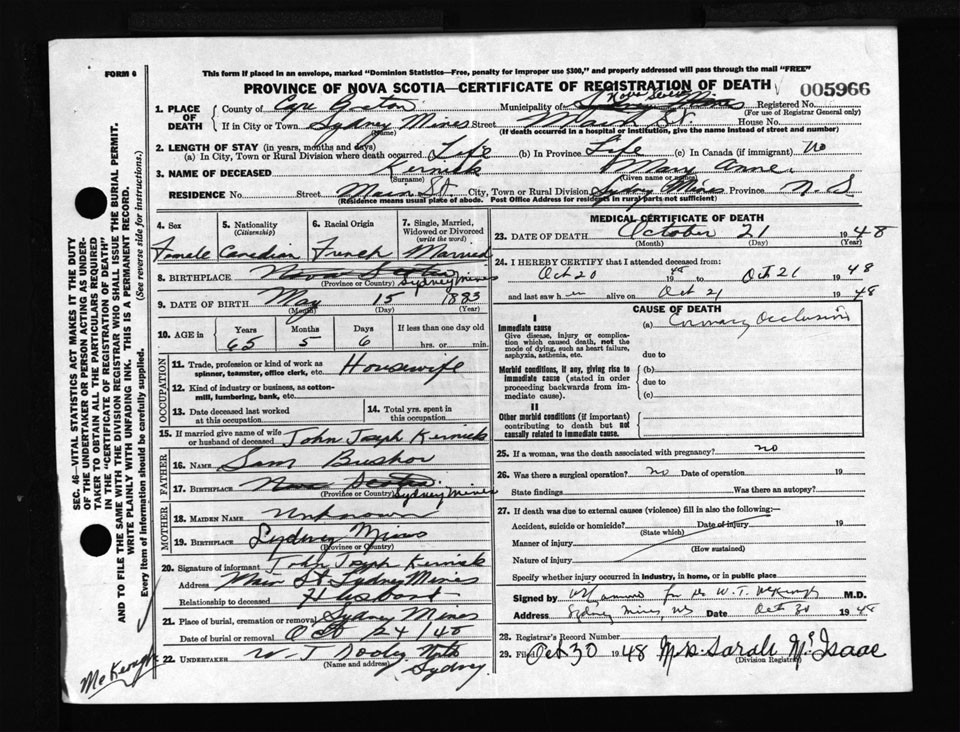 FORM 6
This form if placed in an envelope, marked "Dominion Statistics—Free, penalty for improper use $300," and properly addressed will pass through the mail "FREE"
PROVINCE OF NOVA SCOTIA—CERTIFICATE OF REGISTRATION OF DEATH
005966
1. PLACE OF DEATH County of Cape Breton Municipality of Nova Scotia Sydney Mines Registered No.
(For use of Registrar General only)
If in City or Town Sydney Mines Street Main St. House No.
(Name) (If death occurred in a hospital or institution, give the name instead of street and number)
2. LENGTH OF STAY (in years, months and days)
(a) In City, Town or Rural Division where death occurred Life (b) In Province Life (c) In Canada (if immigrant) No
3. NAME OF DECEASED Kernick Mary Anne
(Surname) (Given name or names)
RESIDENCE No. Street Main St. City, Town or Rural Division Sydney Mines Province N. S
(Residence means usual place of abode. Post Office Address for residents in rural parts not sufficient)
4. Sex 5. Nationality (Citizenship) 6. Racial Origin 7. Single, Married, Widowed or Divorced (write the word)
Female Canadian French Married
8. BIRTHPLACE Nova Scotia Sydney Mines
(Province or Country)
9. DATE OF BIRTH May 15 1883
(Month) (Day) (Year)
10. AGE in Years Months Days If less than one day old
65 5 6 hrs. or min.
OCCUPATION
11. Trade, profession or kind of work as spinner, teamster, office clerk, etc. Housewife
12. Kind of industry or business, as cotton-mill, lumbering, bank, etc.
13. Date deceased last worked at this occupation
14. Total yrs. spent in this occupation
15. If married give name of wife or husband of deceased John Joseph Kernick
FATHER
16. NAME Sam
17. BIRTHPLACE Nova Scotia Sydney Mines
(Province or Country)
MOTHER
18. MAIDEN NAME Unknown
19. BIRTHPLACE Sydney Mines
(Province or Country)
20. Signature of informant John Joseph Kernick
Address Main St Sydney Mines
Relationship to deceased Husband
21. Place of burial, cremation or removal Sydney Mines
Date of burial or removal Oct 24/48
22. UNDERTAKER W J Dooley North Sydney
(Name and address)
MEDICAL CERTIFICATE OF DEATH
23. DATE OF DEATH October 21 1948
(Month) (Day) (Year)
24. I HEREBY CERTIFY that I attended deceased from:
Oct 20 1948 to Oct 21 1948
and last saw her alive on Oct 21 1948
CAUSE OF DEATH
I
Immediate cause (a) Coronary Occlusion
Give disease, injury or complication which caused death, not the mode of dying, such as heart failure, asphyxia, asthenia, etc.
due to
Morbid conditions, if any, giving rise to immediate cause (stated in order proceeding backwards from immediate cause).
(b)
due to
(c)
II
Other morbid conditions (if important) contributing to death but not causally related to immediate cause.
25. If a woman, was the death associated with pregnancy? no
26. Was there a surgical operation? no Date of operation 19
State findings Was there an autopsy?
27. If death was due to external causes (violence) fill in also the following:—
Accident, suicide or homicide? Date of injury 19
(State which)
Manner of injury
(How sustained)
Nature of injury
Specify whether injury occurred in industry, in home, or in public place
Signed by for Dr W. T. McKeough M.D.
Address Sydney Mines, NS Date Oct 30 1948
28. Registrar's Record Number
29. Filed Oct 30 1948 Mrs. Sarah McIsaac
(Division Registrar)
SEC. 46—VITAL STATISTICS ACT MAKES IT THE DUTY OF THE UNDERTAKER OR PERSON ACTING AS UNDERTAKER TO OBTAIN ALL THE PARTICULARS REQUIRED IN THE "CERTIFICATE OF REGISTRATION OF DEATH" AND TO FILE THE SAME WITH THE DIVISION REGISTRAR WHO SHALL ISSUE THE BURIAL PERMIT.
WRITE PLAINLY WITH UNFADING INK. THIS IS A PERMANENT RECORD.
Every item of information should be carefully supplied. (See reverse side for instructions.)
McKeough